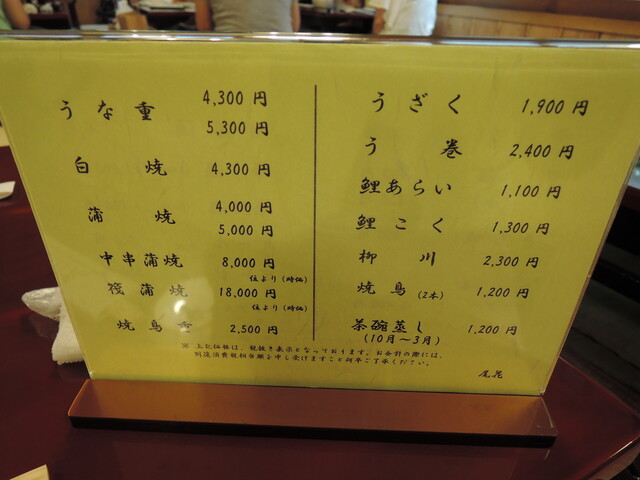 うな重 4,300 円
5,300 円
白焼 4,300 円
蒲焼 4,000 円
5,000 円
中串蒲焼 8,000 円
位より（時価）
筏蒲焼 18,000 円
位より（時価）
焼鳥重 2,500 円
うざく 1,900 円
う巻 2,400 円
鯉あらい 1,100 円
鯉こく 1,300 円
柳川 2,300 円
焼鳥（2本） 1,200 円
茶碗蒸し 1,200 円
（10月～3月）
※ 上記価格は、税抜き表示となっております。お会計の際には、
別途消費税相当額を申し受けますこと何卒ご了承ください。
尾花